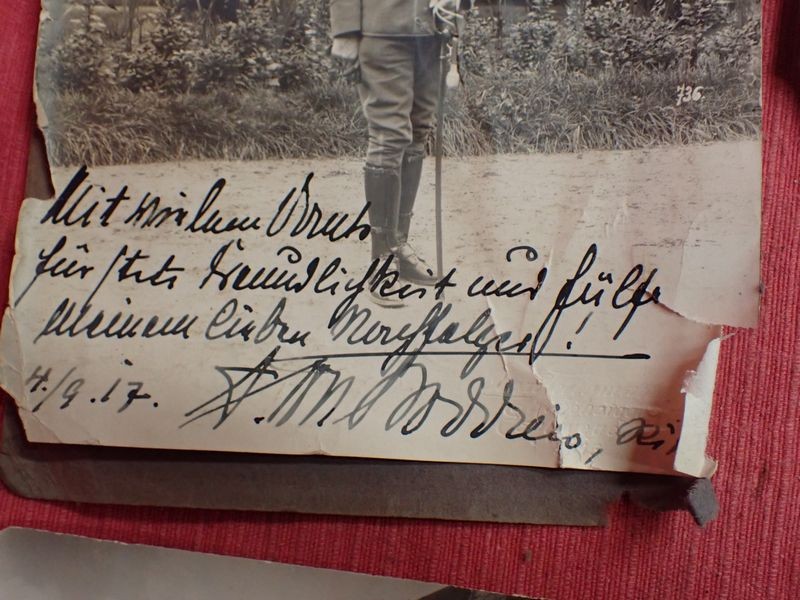 736.
Mit vielem Dank
für stete Freundlichkeit und Hülfe
meinem lieben Nachfolger!
4./9.17.